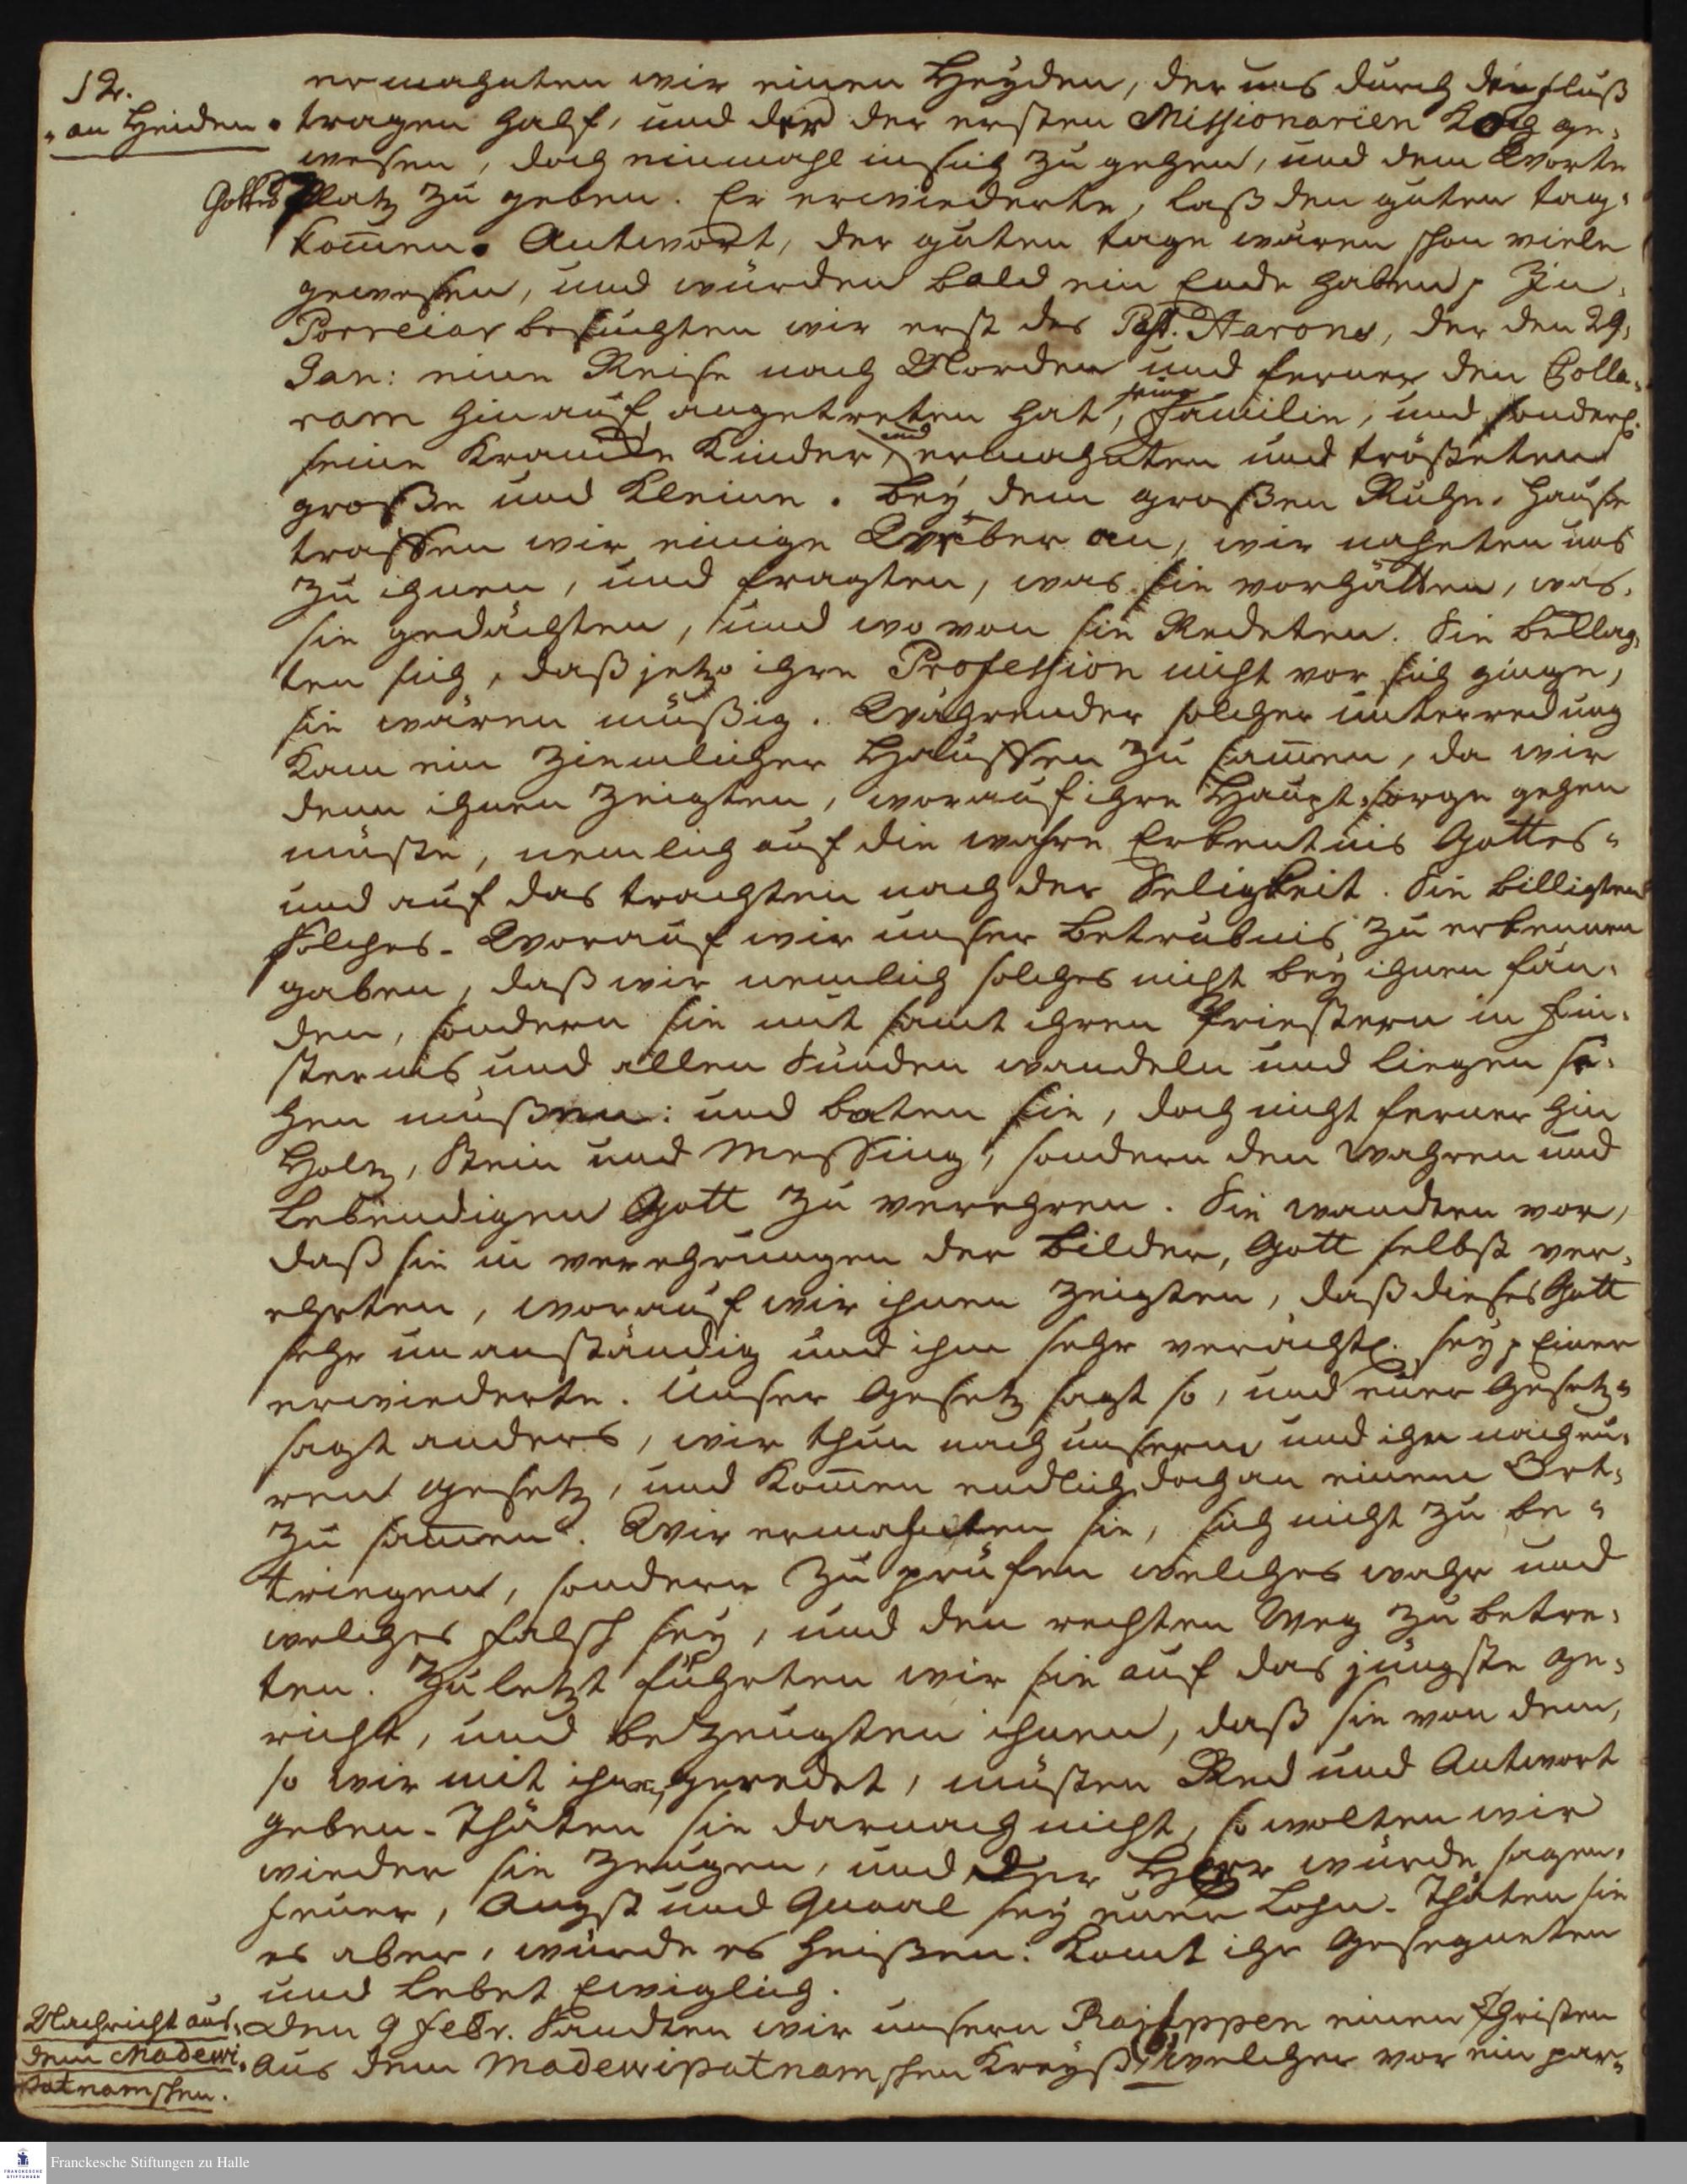 12.
an Heiden.
ermahnten wir einen Heyden, der uns durch den fluß
tragen half, und der der ersten Missionarien Koch ge-
wesen, doch einmahl in sich zu gehen, und dem Worte
Gottes Platz zu geben. Er erwiederte, laß den guten tag
kom̄en. Antwort, der guten tage wären schon viele
gewesen, und würden bald ein Ende haben. In
Porreiar besuchten wir erst des Past. Aarons, der den 29.
Jan: eine Reise nach Norden und ferner den Colla-
ram hinauf angetreten hat, seine Familie, und sonderl.
seine Krancke Kinder, und ermahnten und trösteten
große und kleine. Bey dem großen Ruhe-Hause
traffen wir einige Weber an, wir naheten uns
zu ihnen, und fragten, was sie vorhätten, was
sie gedächten, und wo von sie Redeten. Sie beklag-
ten sich, daß jetzo ihre Profession nicht vor sich ginge,
sie wären müßig. Währender solcher unterredung
kam ein ziemlicher Hauffen zu sam̄en, da wir
denn ihnen zeigten, worauf ihre Haupt-sorge gehen
müste, nemlich auf die wahre Erkentnis Gottes
und auf das trachten nach der Seligkeit. Sie billigten
solches. Worauf wir unser Betrübnis zu erkennen
gaben, daß wir nemlich solches nicht bey ihnen fän-
den, sondern sie mit samt ihren Priestern in Fin-
sternis und allen Sünden wandeln und liegen se-
hen müßten: und baten sie, doch nicht ferner hin
Holtz, Stein und Messing, sondern den wahren und
Lebendigen Gott zu verehren. Sie wandten vor,
daß sie in verehrungen der Bilder, Gott selbst ver-
ehrten, worauf wir ihnen zeigten, daß dieses Gott
sehr unanständig und ihm sehr verächtl. sey. Einer
erwiederte. Unser Gesetz sagt so, und euer Gesetz
sagt anders, wir thun nach unserm und ihr nach eu-
ren gesetz, und kom̄en endlich doch an einem Ort
zu sam̄en. Wir ermahnten sie, sich nicht zu be-
triegen, sondern zu prüfen welches wahr und
welches falsch sey, und den rechten Weg zu betre-
ten. Zuletzt führten wir sie auf das jüngste ge-
richt, und bezeugten ihnen, daß sie von dem,
so wir mit ihnen geredet, müsten Red und Antwort
geben. Thäten sie darnach nicht, so wolten wir
wieder sie zeugen, und der Herr würde sagen.
feuer, Angst und Quaal sey euer Lohn. Thäten sie
es aber, würde es heißen. Komt ihr Gesegneten
und Lebet Ewiglich.
Nachricht aus
dem Madewi-
patnamschen.
den 9 Febr. Sandten wir unsern Rajappen einen Christen
Aus dem Madewipatnamschen Kreyß, welcher vor ein par
Franckesche Stiftungen zu Halle